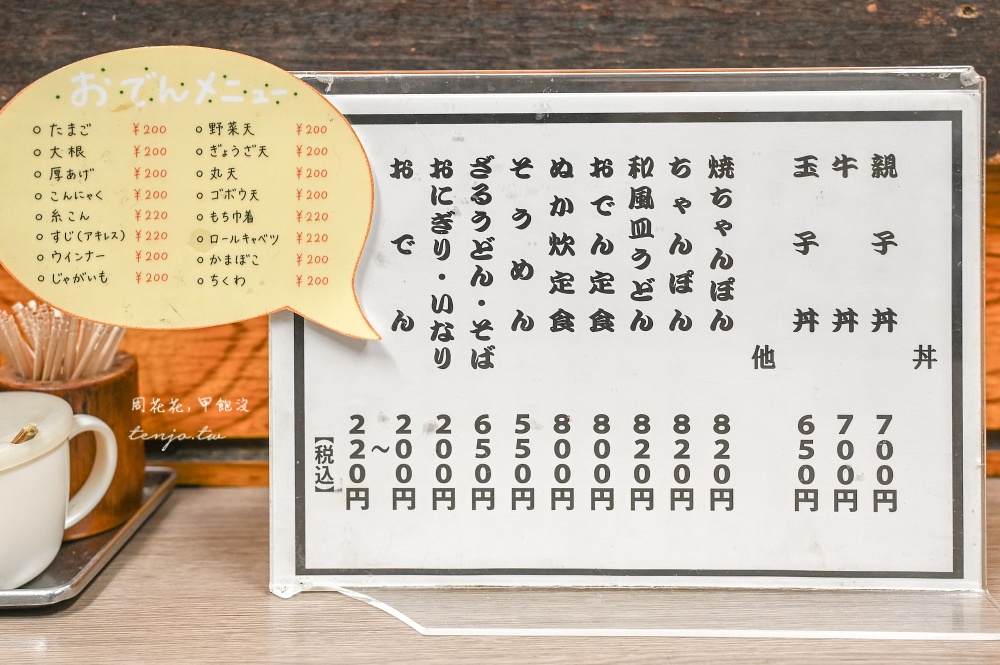 おでんメニュー
○ たまご ¥200
○ 大根 ¥200
○ 厚あげ ¥200
○ こんにゃく ¥200
○ 糸こん ¥220
○ すじ(アキレス) ¥220
○ ウインナー ¥200
○ じゃがいも ¥200
○ 野菜天 ¥200
○ ぎょうざ天 ¥200
○ 丸天 ¥200
○ ゴボウ天 ¥200
○ もち巾着 ¥220
○ ロールキャベツ ¥220
○ かまぼこ ¥200
○ ちくわ ¥200
丼
親子丼 700円
牛丼 700円
玉子丼 650円
他
焼ちゃんぽん 820円
ちゃんぽん 820円
和風皿うどん 820円
おでん定食 800円
ぬか炊定食 800円
そうめん 550円
ざるうどん・そば 650円
おにぎり・いなり 200円
おでん 200円
~220円
【税込】
周花花,甲飽沒
tenjo.tw